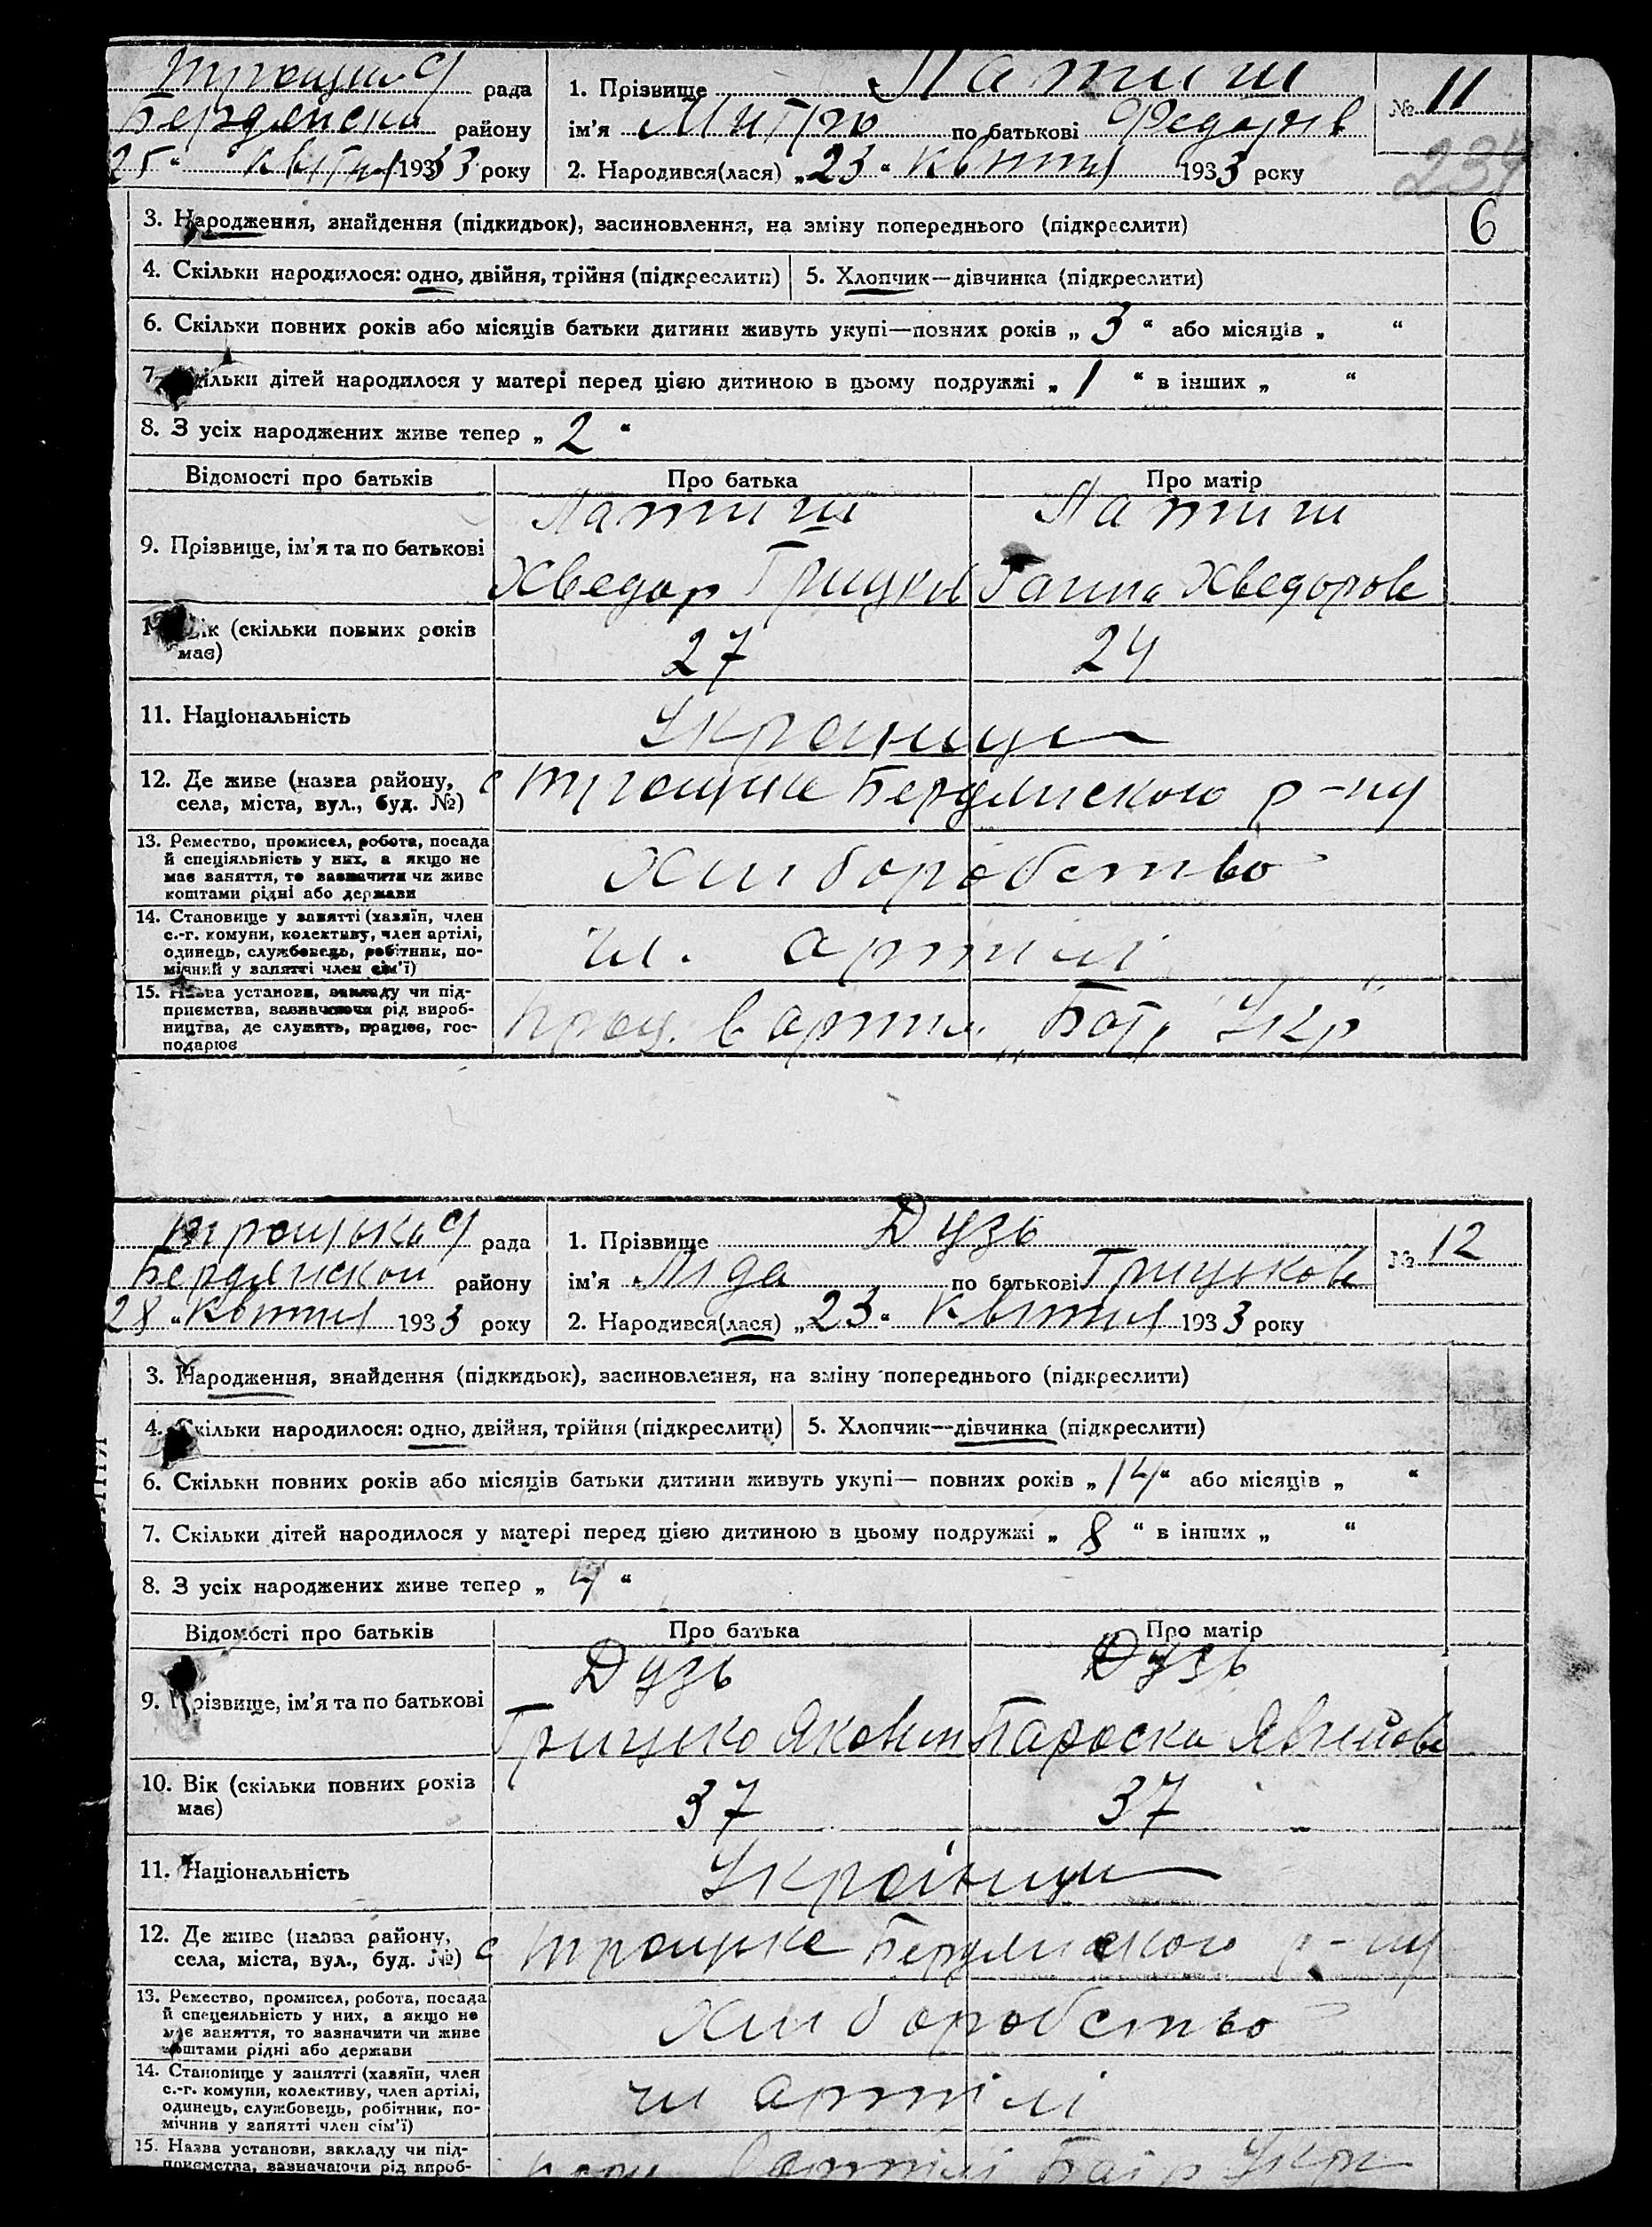 Троцька с/ рада
Бердянськ району
25 " квітня 1933 року
1. Прізвище Латиш
ім'я Митро по батькові Федорів
2. Народився(лася) „23" квітня 1933 року
№ 11
234
3. Народження, знайдення (підкидьок), засиновлення, на зміну попереднього (підкреслити)
6
4. Скільки народилося: одно, двійня, трійня (підкреслити)
5. Хлопчик—дівчинка (підкреслити)
6. Скільки повних років або місяців батьки дитини живуть укупі—повних років „ 3 " або місяців „ "
7. Скільки дітей народилося у матері перед цією дитиною в цьому подружжі „ 1 " в інших „ "
8. З усіх народжених живе тепер „ 2 "
Відомості про батьків
Про батька
Про матір
9. Прізвище, ім'я та по батькові
Латиш
Хведор Грицков
Латиш
Ганна Хведорове
10. Вік (скільки повних років
має)
27
24
11. Національність
Українци
12. Де живе (назва району,
села, міста, вул., буд. №)
с Троцьке Бердянского р-ну
13. Ремество, промисел, робота, посада
й спеціяльність у них, а якщо не
має заняття, то зазначити чи живе
коштами рідні або держави
Хлиборобство
14. Становище у занятті (хазяїн, член
с.-г. комуни, колективу, член артілі,
одинець, службовець, робітник, по-
мічний у занятті член сім'ї)
чл. артилі
15. Назва установи, закладу чи під-
приємства, зазначаючи рід вироб-
ництва, де служить, працює, гос-
подарює
прац. в артил. „Бат Укр"
Троцька с/ рада
Бердянскои району
28 " квітня 1933 року
1. Прізвище Дузь
ім'я Лида по батькові Грицькове
2. Народився(лася) „23" квітня 1933 року
№ 12
3. Народження, знайдення (підкидьок), засиновлення, на зміну попереднього (підкреслити)
4. Скільки народилося: одно, двійня, трійня (підкреслити)
5. Хлопчик—дівчинка (підкреслити)
6. Скільки повних років або місяців батьки дитини живуть укупі— повних років „ 14 " або місяців „ "
7. Скільки дітей народилося у матері перед цією дитиною в цьому подружжі „ 8 " в інших „ "
8. З усіх народжених живе тепер „ 4 "
Відомості про батьків
Про батька
Про матір
9. Прізвище, ім'я та по батькові
Дузь
Грицько Яковит
Дузь
Параска
10. Вік (скільки повних років
має)
37
37
11. Національність
Українци
12. Де живе (назва району,
села, міста, вул., буд. №)
с Троцьке Бердянского р-ну
13. Ремество, промисел, робота, посада
й спецеяльність у них, а якщо не
має заняття, то зазначити чи живе
коштами рідні або держави
Хлиборобство
14. Становище у занятті (хазяїн, член
с.-г. комуни, колективу, член артілі,
одинець, службовець, робітник, по-
мічнив у занятті член сім'ї)
чл артілі
15. Назва установи, закладу чи під-
приємства, зазначаючи рід вироб-
прац. в артілі Батр Укр